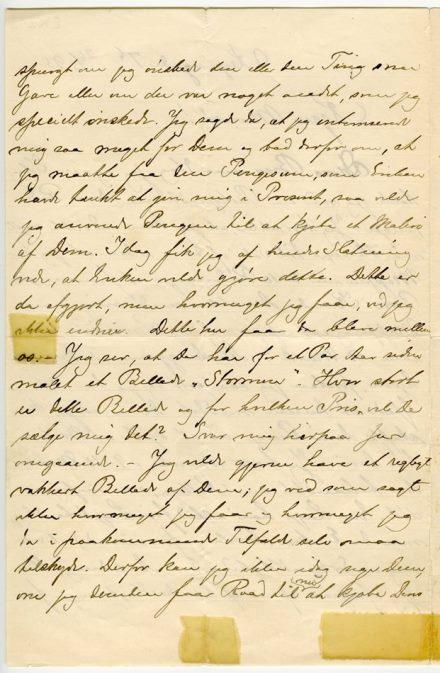 spurgt om jeg ønskede den eller den Ting som
Gave eller om der var noget andet, som jeg
specielt ønskede. Jeg sagde da, at jeg interesserede
mig saa meget for Dem og bad derfor om, at
jeg maatte faa den Pengesum, som Enken
havde tænkt at give mig i Present, saa vilde
jeg anvende Pengene til at kjøbe et Maleri
af Dem. Idag fik jeg af hendes
vide, at Enken vilde gjøre dette. Dette er
da afgjort, men hvormeget jeg faar, ved jeg
ikke endnu. Dette her faa da blive mellem
os. – Jeg ser, at De har for et Par Aar siden
malet et Billede „Stormen". Hvor stort
er dette Billede og for hvilken Pris vil De
sælge mig det? Svar mig herpaa
omgaaende. – Jeg vilde gjerne have et regtigt
vakkert Billede af Dem; jeg ved som sagt
ikke hvormeget jeg faar og hvormeget jeg
da i paakommende Tilfælde selv maa
tilskyde. Derfor kan jeg ikke idag sige Dem,
om jeg faar Raad til nu at kjøbe Deres